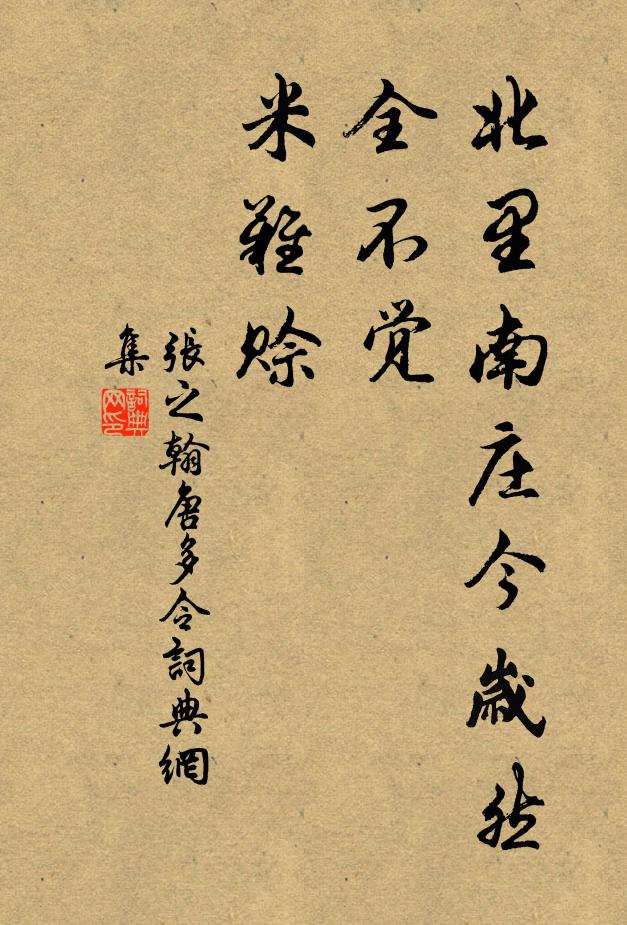 北里南庄今歲
全不觉
米難賒
張之翰唐多令詞典網
集
詞典
网印